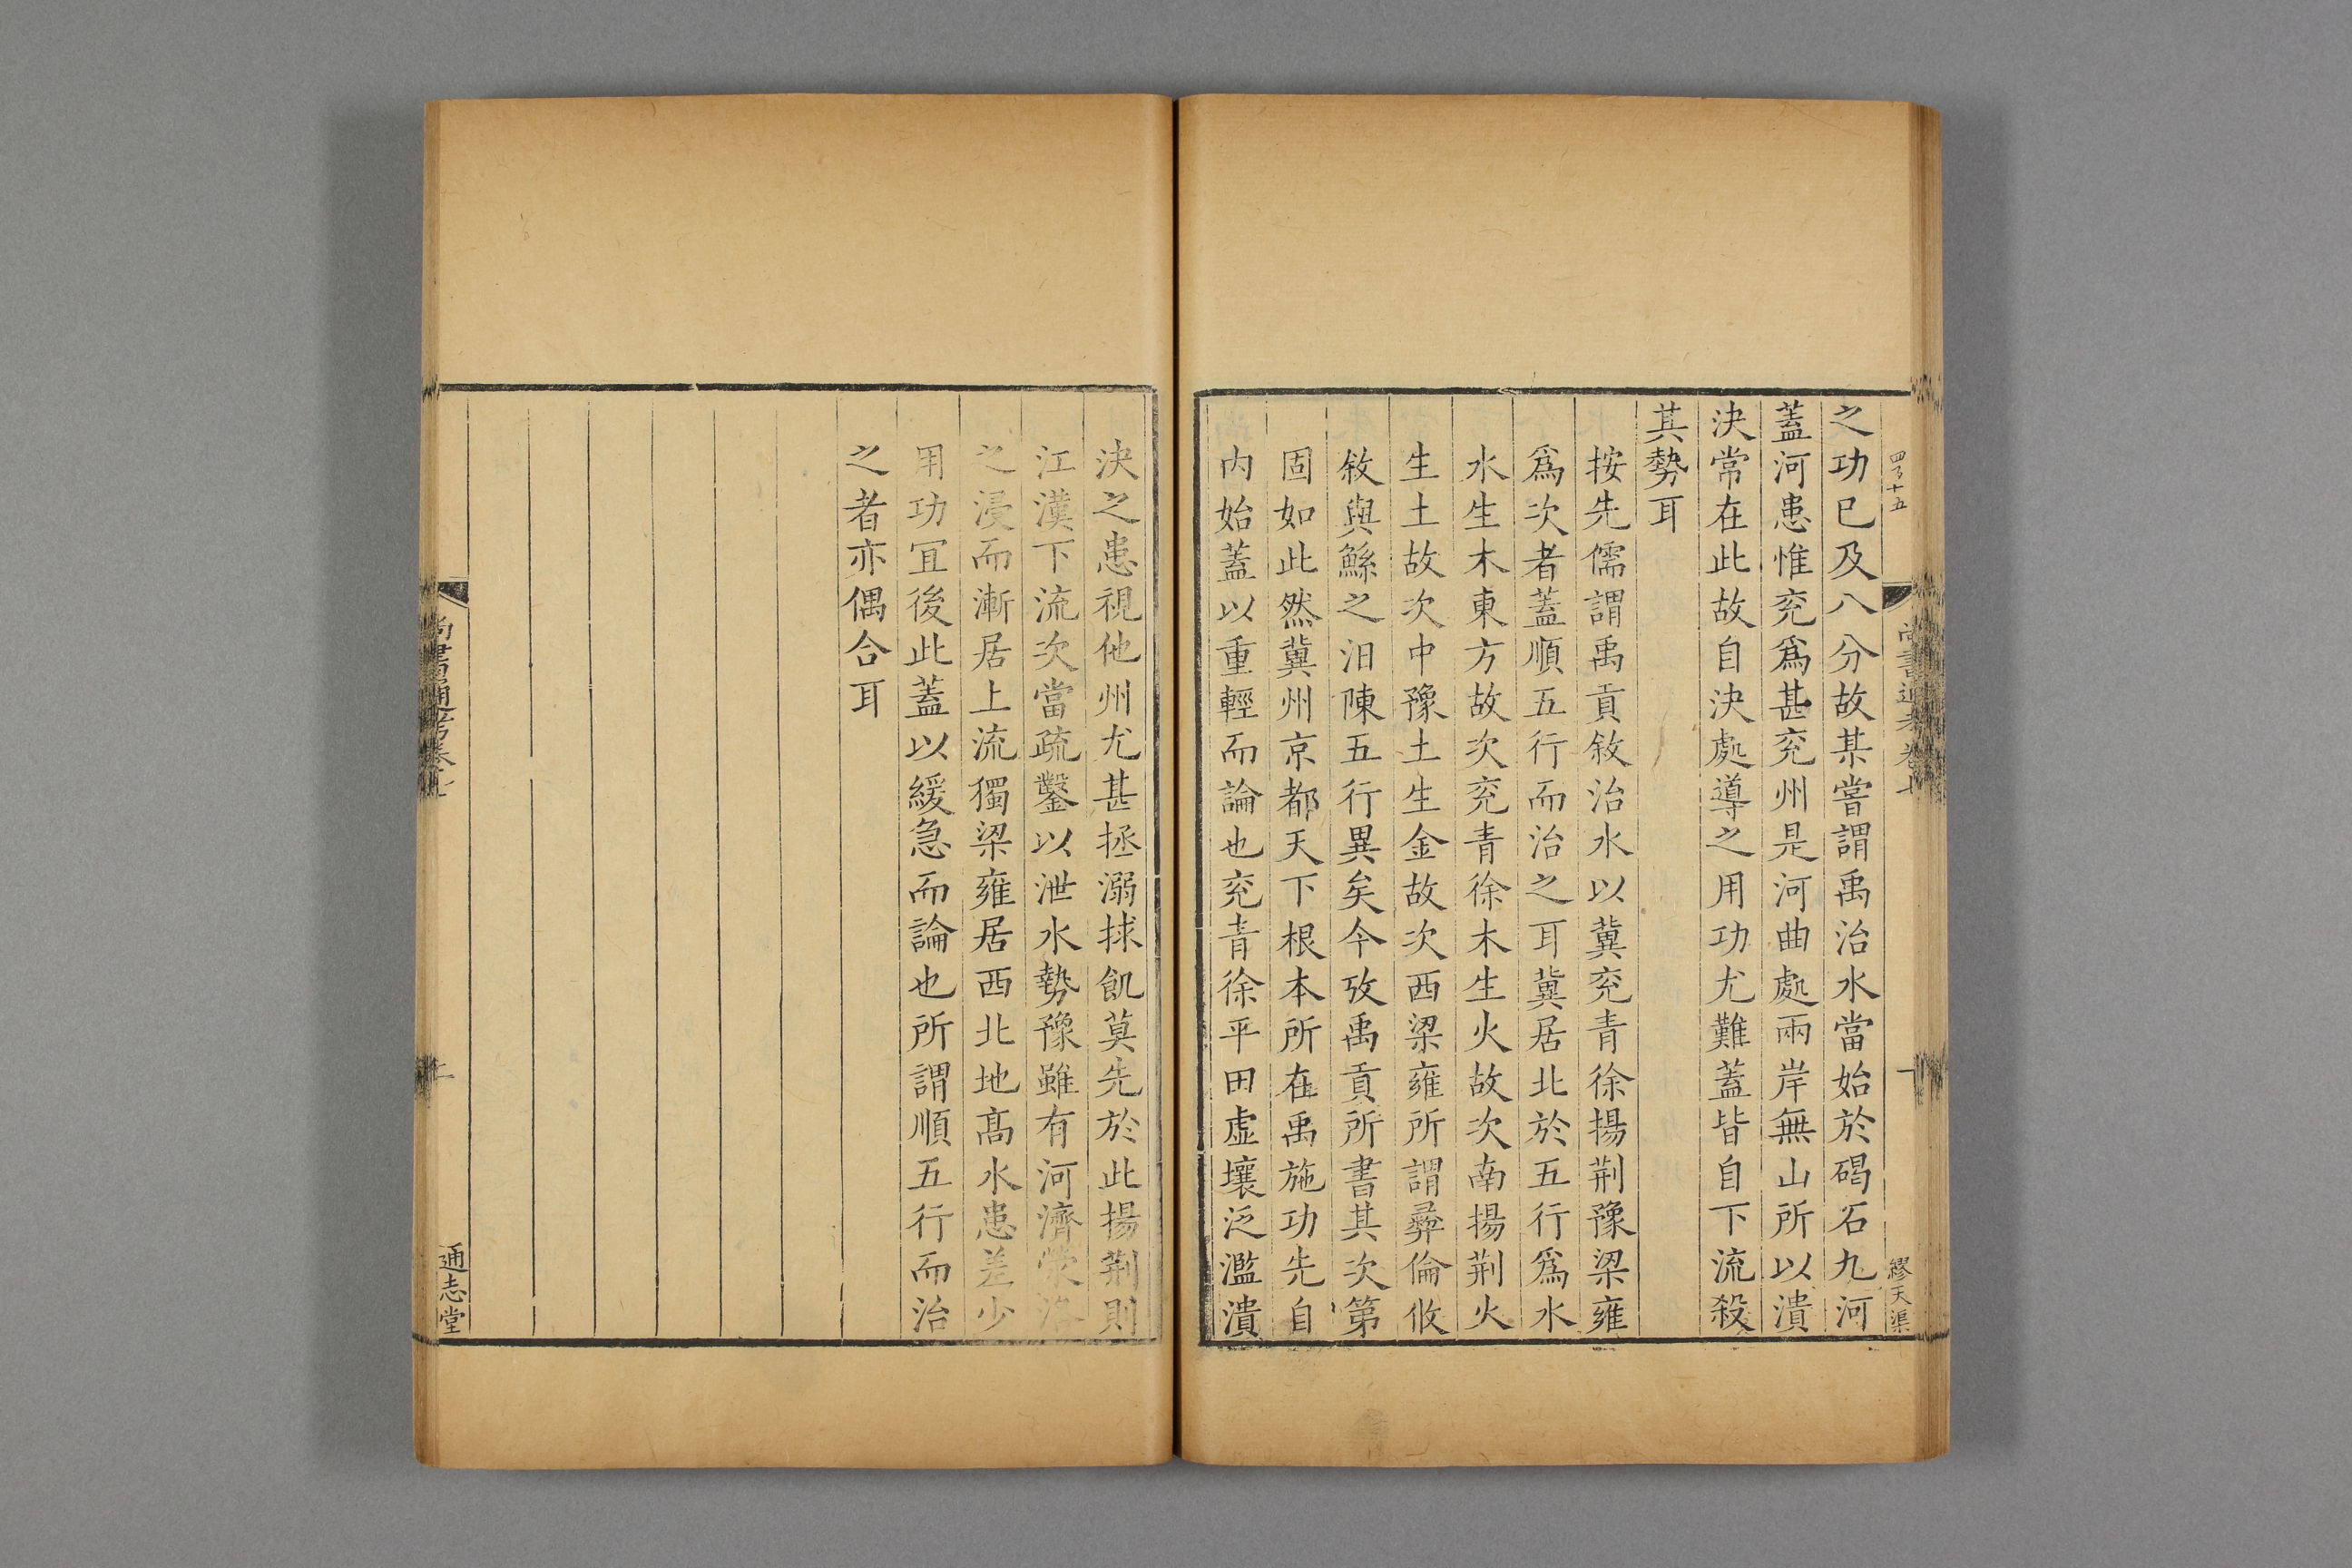 四百十五
之功已及八分故某嘗謂禹治水當始於碣石九河
蓋河患惟兖爲甚兖州是河曲處兩岸無山所以潰
決常在此故自決處導之用功尤難蓋皆自下流殺
其勢耳
按先儒謂禹貢敘治水以冀兖青徐揚荆豫梁雍
爲次者蓋順五行而治之耳冀居北於五行爲水
水生木東方故次兖青徐木生火故次南揚荆火
生土故次中豫土生金故次西梁雍所謂彞倫攸
敘與鯀之汨陳五行異矣今攷禹貢所書其次第
固如此然冀州京都天下根本所在禹施功先自
内始蓋以重輕而論也兖青徐平田虚壤泛濫潰
決之患視他州尤甚拯溺捄飢莫先於此揚荆則
江漢下流次當疏鑿以泄水勢豫雖有河濟滎洛
之浸而漸居上流獨梁雍居西北地髙水患差少
用功冝後此蓋以緩急而論也所謂順五行而治
之者亦偶合耳
尚書通考卷七
繆天渠
尚書通考卷七
通志堂